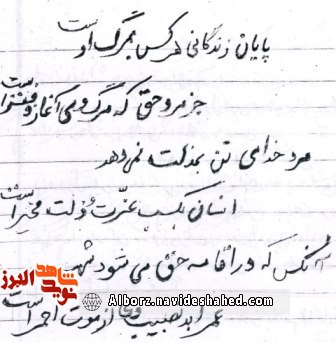 پایان زندگانی هرکس بمرگ اوست
جز مرد حق که مرگ وی آغاز دفتر است
مرد خدای تن بمذلت نمی دهد
انسان بکسب عزّت و ذلت مخیر است
آنکس که در اقامه حق می شود شهید
عمر ابد نصیب وی از موت احمر است
شاهد
نوید
البرز
Alborz.navideshahed.com